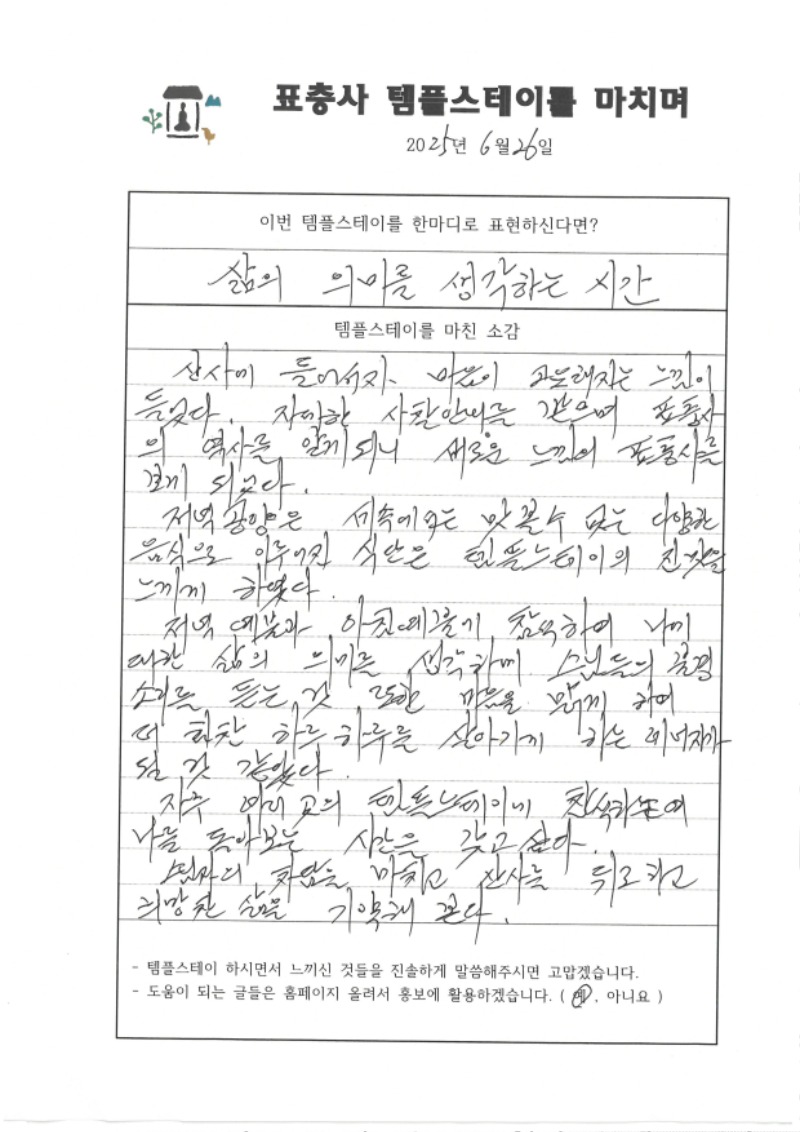 표충사 템플스테이를 마치며
2025년 6월 26일
이번 템플스테이를 한마디로 표현하신다면?
삶의 의미를 생각하는 시간
템플스테이를 마친 소감
산사에 들어서자 마음이 느낌이
들었다. 자세한 사찰안내를 받으며 표충사
의 역사를 알게되니 새로운 느낌의 표충사를
보게 되었다.
저녁공양은 세속에서는 맛볼수 없는 다양한
음식으로 이루어진 식단은 템플스테이의 진맛을
느끼게 하였다.
저녁 예불과 아침예불에 참석하여 나에
대한 삶의 의미를 생각하며 스님들의
소리를 듣는 것 또한 마음을 맑게 하여
더 힘찬 하루하루를 살아가게 하는 에너지가
될 것 같았다.
자주 여러 곳의 템플스테이에 참석하여
나를 돌아보는 시간을 갖고 싶다.
스님과의 차담을 마치고 산사를 뒤로하고
희망찬 삶을 기약해 본다.
- 템플스테이 하시면서 느끼신 것들을 진솔하게 말씀해주시면 고맙겠습니다.
- 도움이 되는 글들은 홈페이지 올려서 홍보에 활용하겠습니다. ( 예, 아니요 )